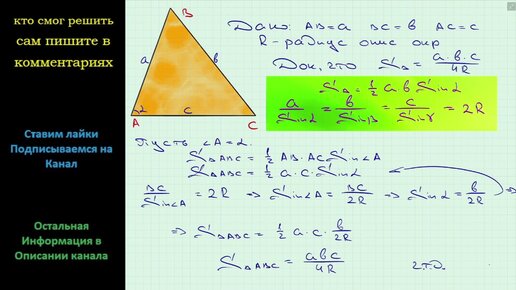 кто смог решить
сам пишите в
комментариях
Ставим лайки
Подписываемся на
Канал
Остальная
Информация в
Описании канала
B
a
b
α
c
A
C
Дано: AB=a BC=b AC=c
R - радиус опис окр
Док, что S△ = a·b·c / 4R
S△ = 1/2 a b Sin α
a / Sin α = b / Sin β = c / Sin γ = 2R
Пусть ∠A=α.
S△ABC = 1/2 AB·AC Sin∠A
S△ABC = 1/2 a·c·Sin α
BC / Sin∠A = 2R ⇒ Sin∠A = BC / 2R ⇒ Sin α = b / 2R
⇒ S△ABC = 1/2 a·c· b / 2R
S△ABC = abc / 4R ч.т.д.